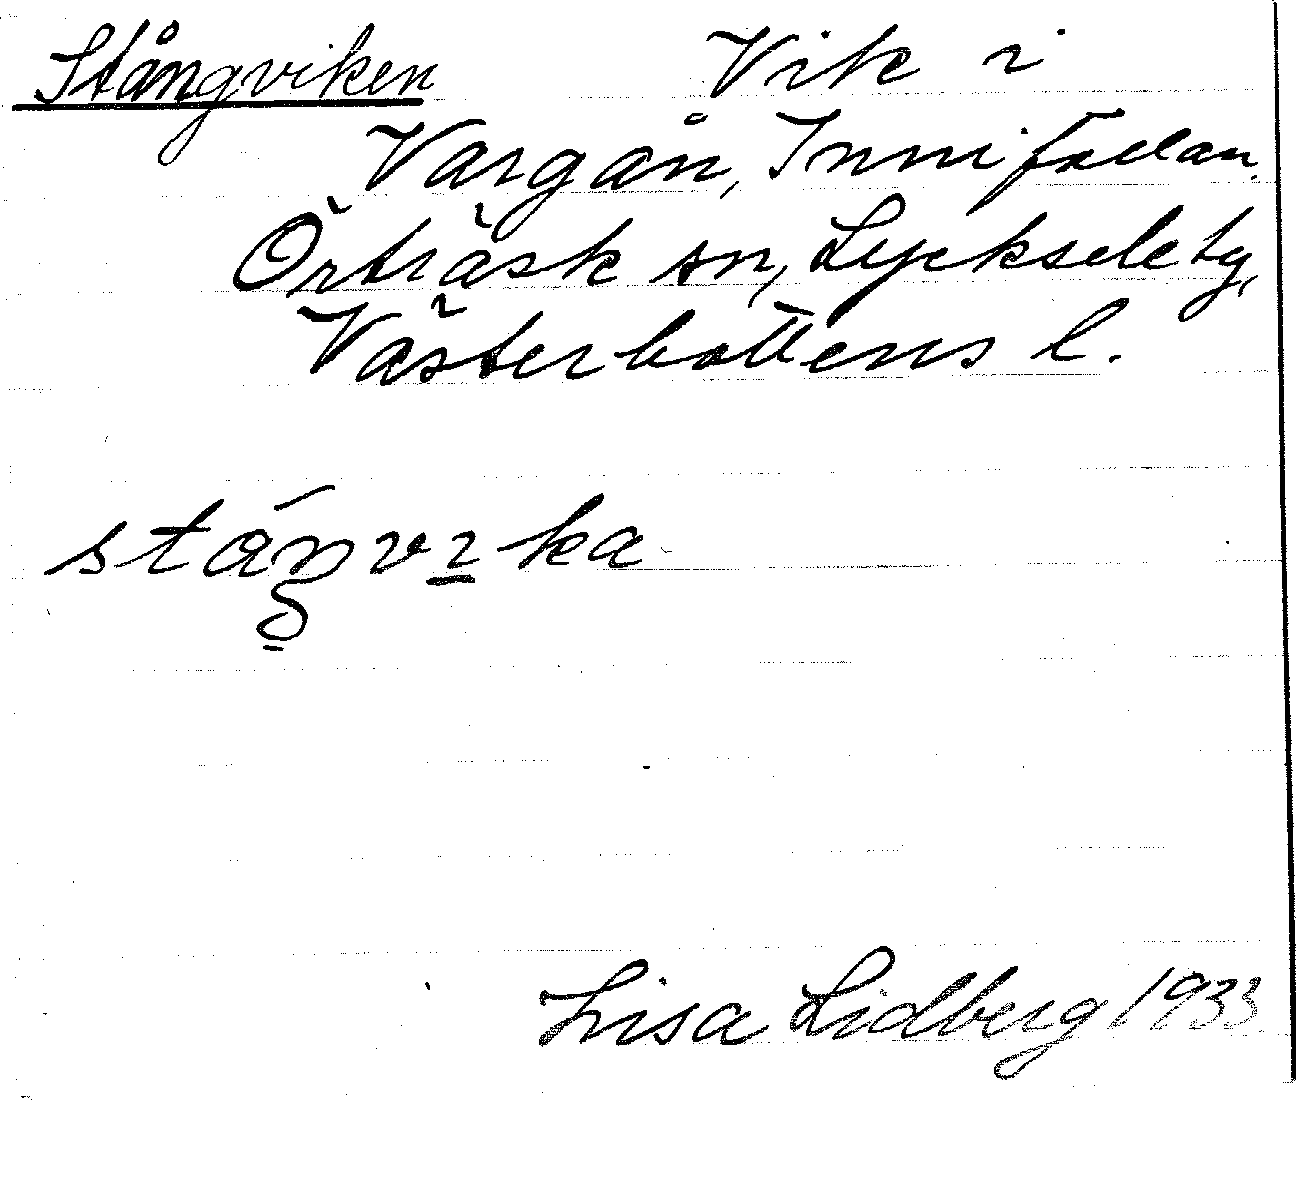 Stångviken Vik i
Vargån, Innifallan.
Örträsk sn, Lycksele tg,
Västerbottens l.
Lisa Lidberg 1933